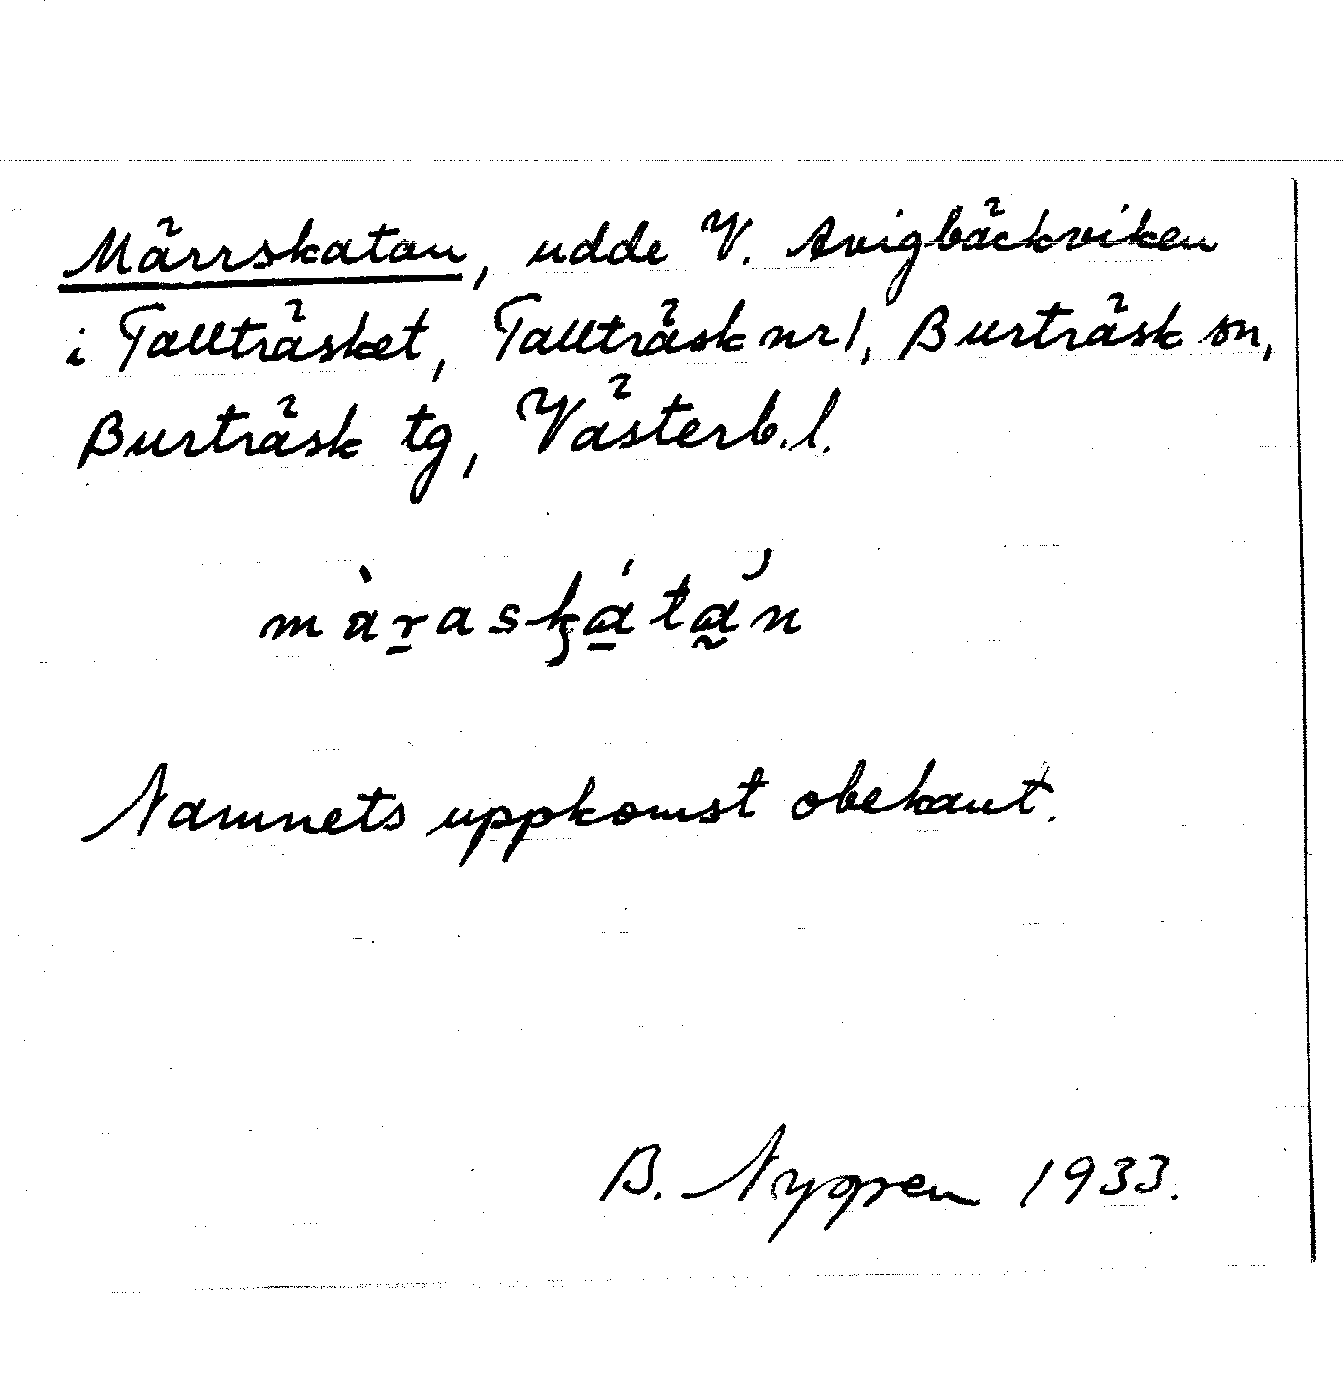 Märrskatan, udde V. Avigbäckviken
i Tallträsket, Tallträsk nr 1, Burträsk sn,
Burträsk tg, Västerb. l.
màr̲asķá̲ta̰n
Namnets uppkomst obekant.
B. Nygren 1933.